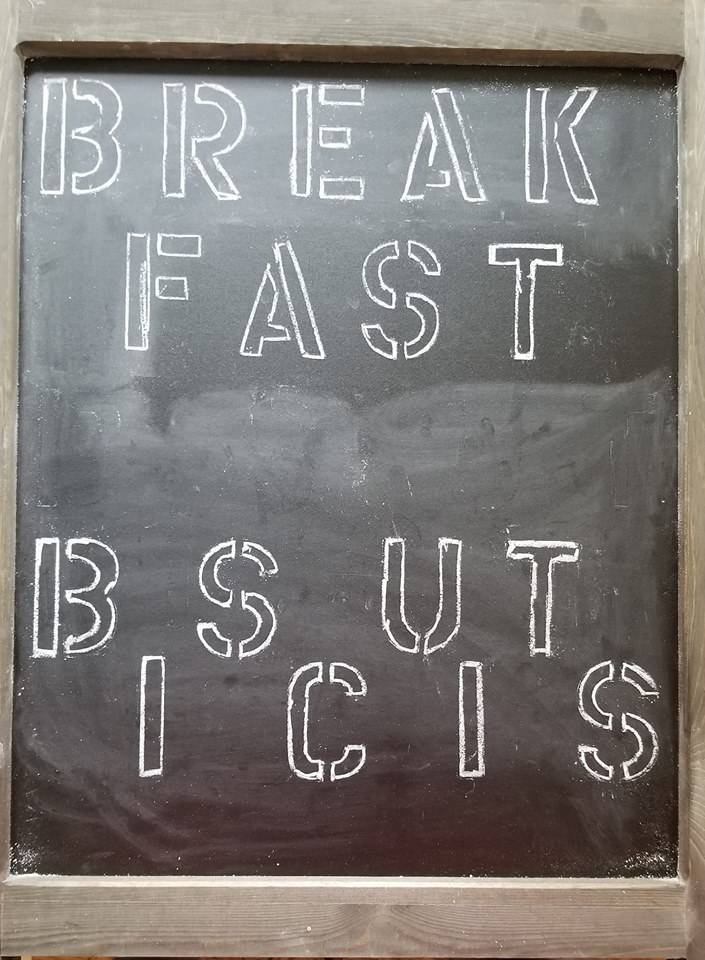 BREAK
FAST
B S U T
I C I S